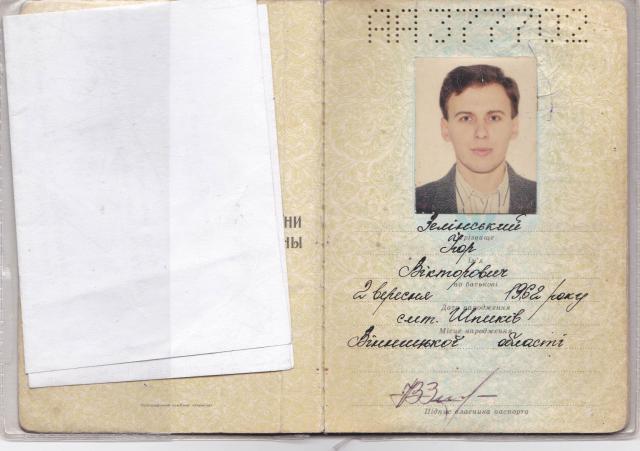 АН377702
НИ
НЫ
Зелінський
Прізвище
Ігор
Ім'я
Вікторович
По батькові
2 вересня 1962 року
Дата народження
смт. Шпиків
Місце народження
Вінницької області
Підпис власника паспорта